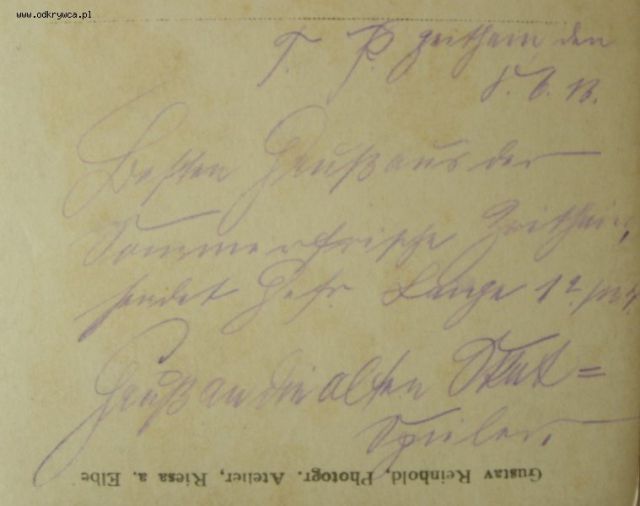 www.odkrywca.pl
T. P. Zeithain, den
8. 6. 13.
Besten Gruß aus der
Sommerfrische Zeithain,
sendet Gefr. Lange
Gruß an die alten Skat=
Spieler.
Gustav Reinhold, Photogr. Atelier, Riesa a. Elbe